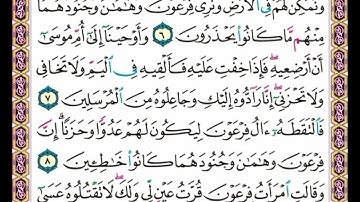 وَنُمَكِّنَ لَهُمْ فِي ٱلْأَرْضِ وَنُرِيَ فِرْعَوْنَ وَهَٰمَٰنَ وَجُنُودَهُمَا
مِنْهُم مَّا كَانُوا۟ يَحْذَرُونَ ٦ وَأَوْحَيْنَآ إِلَىٰٓ أُمِّ مُوسَىٰٓ
أَنْ أَرْضِعِيهِ ۖ فَإِذَا خِفْتِ عَلَيْهِ فَأَلْقِيهِ فِي ٱلْيَمِّ وَلَا تَخَافِي
وَلَا تَحْزَنِيٓ ۖ إِنَّا رَآدُّوهُ إِلَيْكِ وَجَاعِلُوهُ مِنَ ٱلْمُرْسَلِينَ
٧ فَٱلْتَقَطَهُۥٓ ءَالُ فِرْعَوْنَ لِيَكُونَ لَهُمْ عَدُوًّا وَحَزَنًا ۗ إِنَّ
فِرْعَوْنَ وَهَٰمَٰنَ وَجُنُودَهُمَا كَانُوا۟ خَٰطِـِٔينَ ٨
وَقَالَتِ ٱمْرَأَتُ فِرْعَوْنَ قُرَّتُ عَيْنٍ لِّي وَلَكَ ۖ لَا تَقْتُلُوهُ عَسَىٰٓ